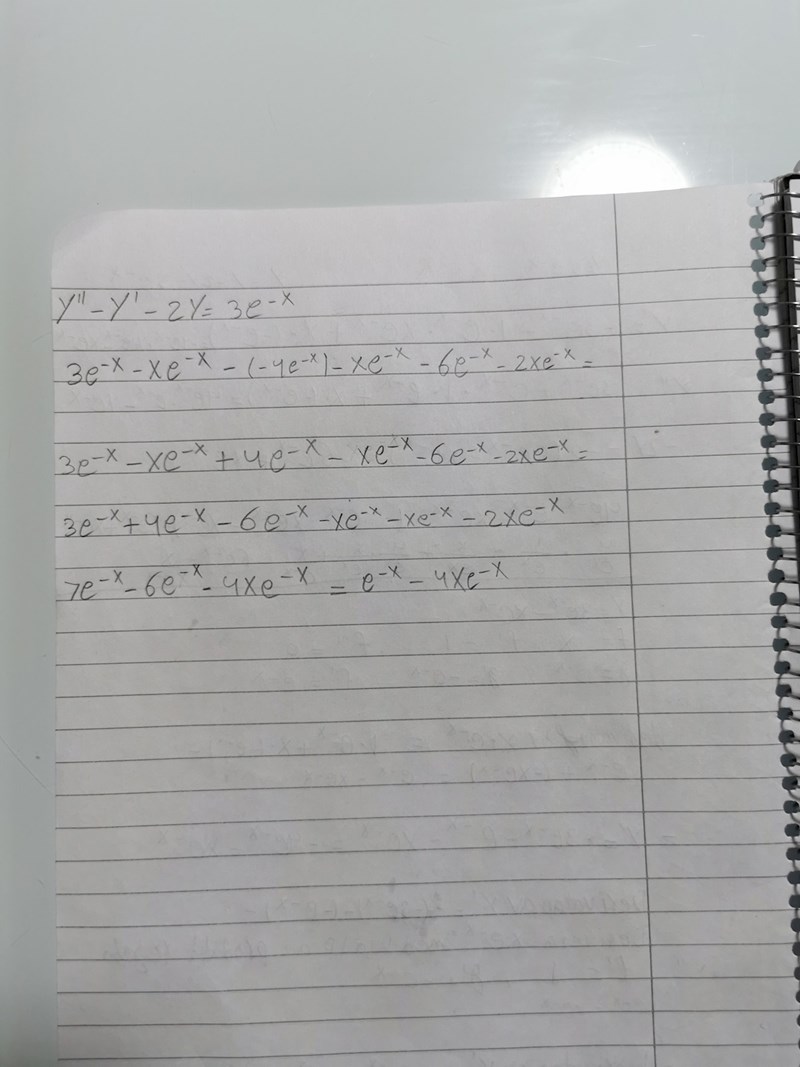 y'' - y' - 2y = 3e^-x
3e^-x - xe^-x - (-4e^-x) - xe^-x - 6e^-x - 2xe^-x =
3e^-x - xe^-x + 4e^-x - xe^-x - 6e^-x - 2xe^-x =
3e^-x + 4e^-x - 6e^-x - xe^-x - xe^-x - 2xe^-x
7e^-x - 6e^-x - 4xe^-x = e^-x - 4xe^-x